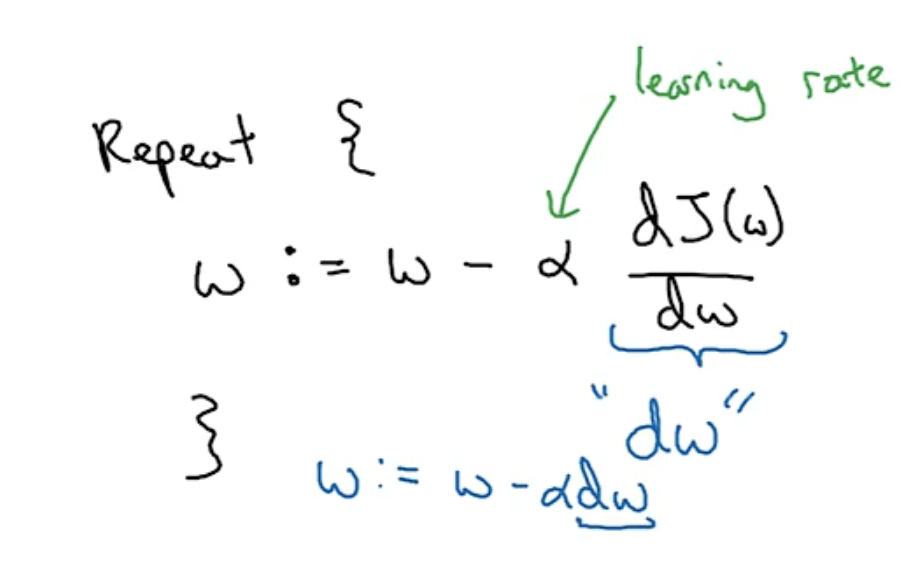 learning rate
Repeat {
w := w - α dJ(w)/dw
"dw"
}
w := w - αdw